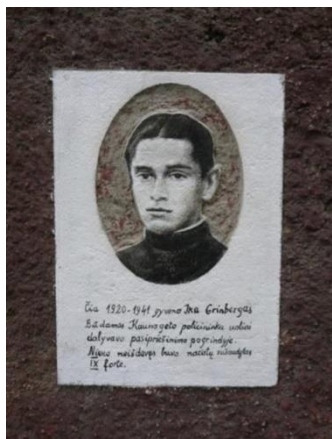 Čia 1920-1941 gyveno Ika Grinbergas
Būdamas Kauno geto policininku uoliai
dalyvavo pasipriešinimo pogrindyje.
Nieko neišdavęs buvo nacių sušaudytas
IX forte.